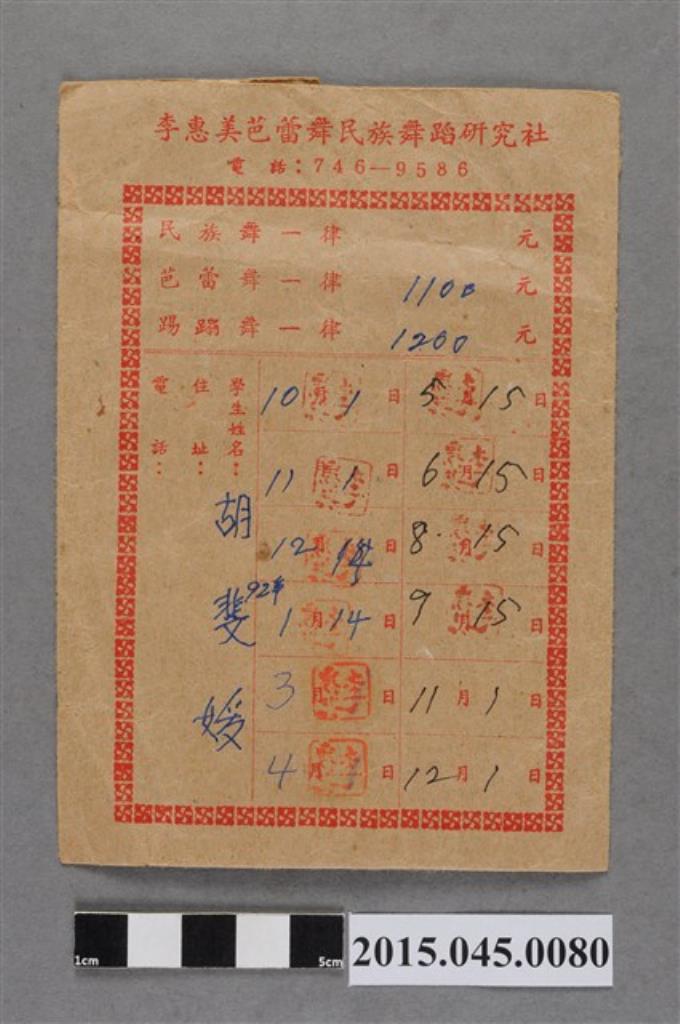 李惠美芭蕾舞民族舞蹈研究社
電話：746—9586
民族舞一律 元
芭蕾舞一律 1100 元
踢蹋舞一律 1200 元
學生姓名：胡斐媛
住址：
電話：
10月1日
11月1日
12月14日
92年1月14日
3月1日
4月1日
5月15日
6月15日
8月15日
9月15日
11月1日
12月1日
1cm 5cm
2015.045.0080